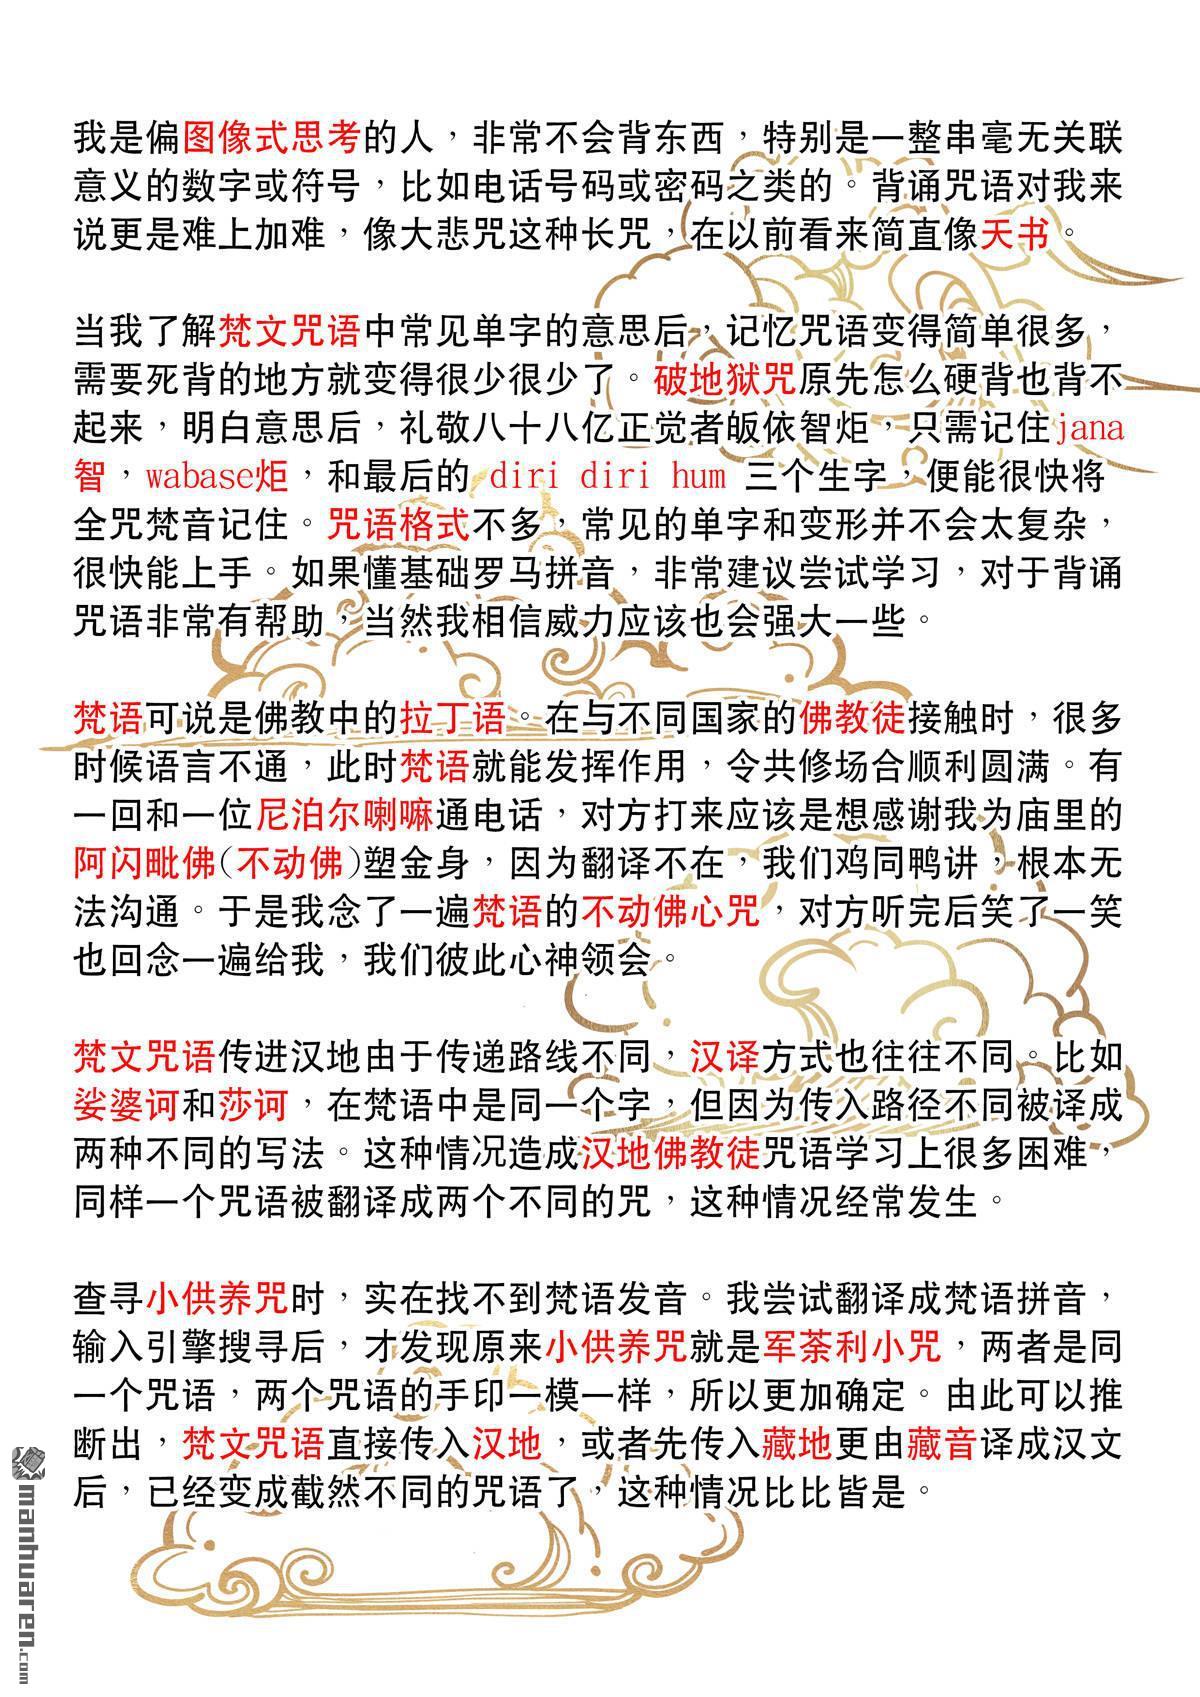 我是偏图像式思考的人，非常不会背东西，特别是一整串毫无关联
意义的数字或符号，比如电话号码或密码之类的。背诵咒语对我来
说更是难上加难，像大悲咒这种长咒，在以前看来简直像天书。
当我了解梵文咒语中常见单字的意思后，记忆咒语变得简单很多，
需要死背的地方就变得很少很少了。破地狱咒原先怎么硬背也背不
起来，明白意思后，礼敬八十八亿正觉者皈依智炬，只需记住jana
智，wabase炬，和最后的 diri diri hum 三个生字，便能很快将
全咒梵音记住。咒语格式不多，常见的单字和变形并不会太复杂，
很快能上手。如果懂基础罗马拼音，非常建议尝试学习，对于背诵
咒语非常有帮助，当然我相信威力应该也会强大一些。
梵语可说是佛教中的拉丁语。在与不同国家的佛教徒接触时，很多
时候语言不通，此时梵语就能发挥作用，令共修场合顺利圆满。有
一回和一位尼泊尔喇嘛通电话，对方打来应该是想感谢我为庙里的
阿闪毗佛(不动佛)塑金身，因为翻译不在，我们鸡同鸭讲，根本无
法沟通。于是我念了一遍梵语的不动佛心咒，对方听完后笑了一笑
也回念一遍给我，我们彼此心神领会。
梵文咒语传进汉地由于传递路线不同，汉译方式也往往不同。比如
娑婆诃和莎诃，在梵语中是同一个字，但因为传入路径不同被译成
两种不同的写法。这种情况造成汉地佛教徒咒语学习上很多困难，
同样一个咒语被翻译成两个不同的咒，这种情况经常发生。
查寻小供养咒时，实在找不到梵语发音。我尝试翻译成梵语拼音，
输入引擎搜寻后，才发现原来小供养咒就是军荼利小咒，两者是同
一个咒语，两个咒语的手印一模一样，所以更加确定。由此可以推
断出，梵文咒语直接传入汉地，或者先传入藏地更由藏音译成汉文
后，已经变成截然不同的咒语了，这种情况比比皆是。
manhuaren.com